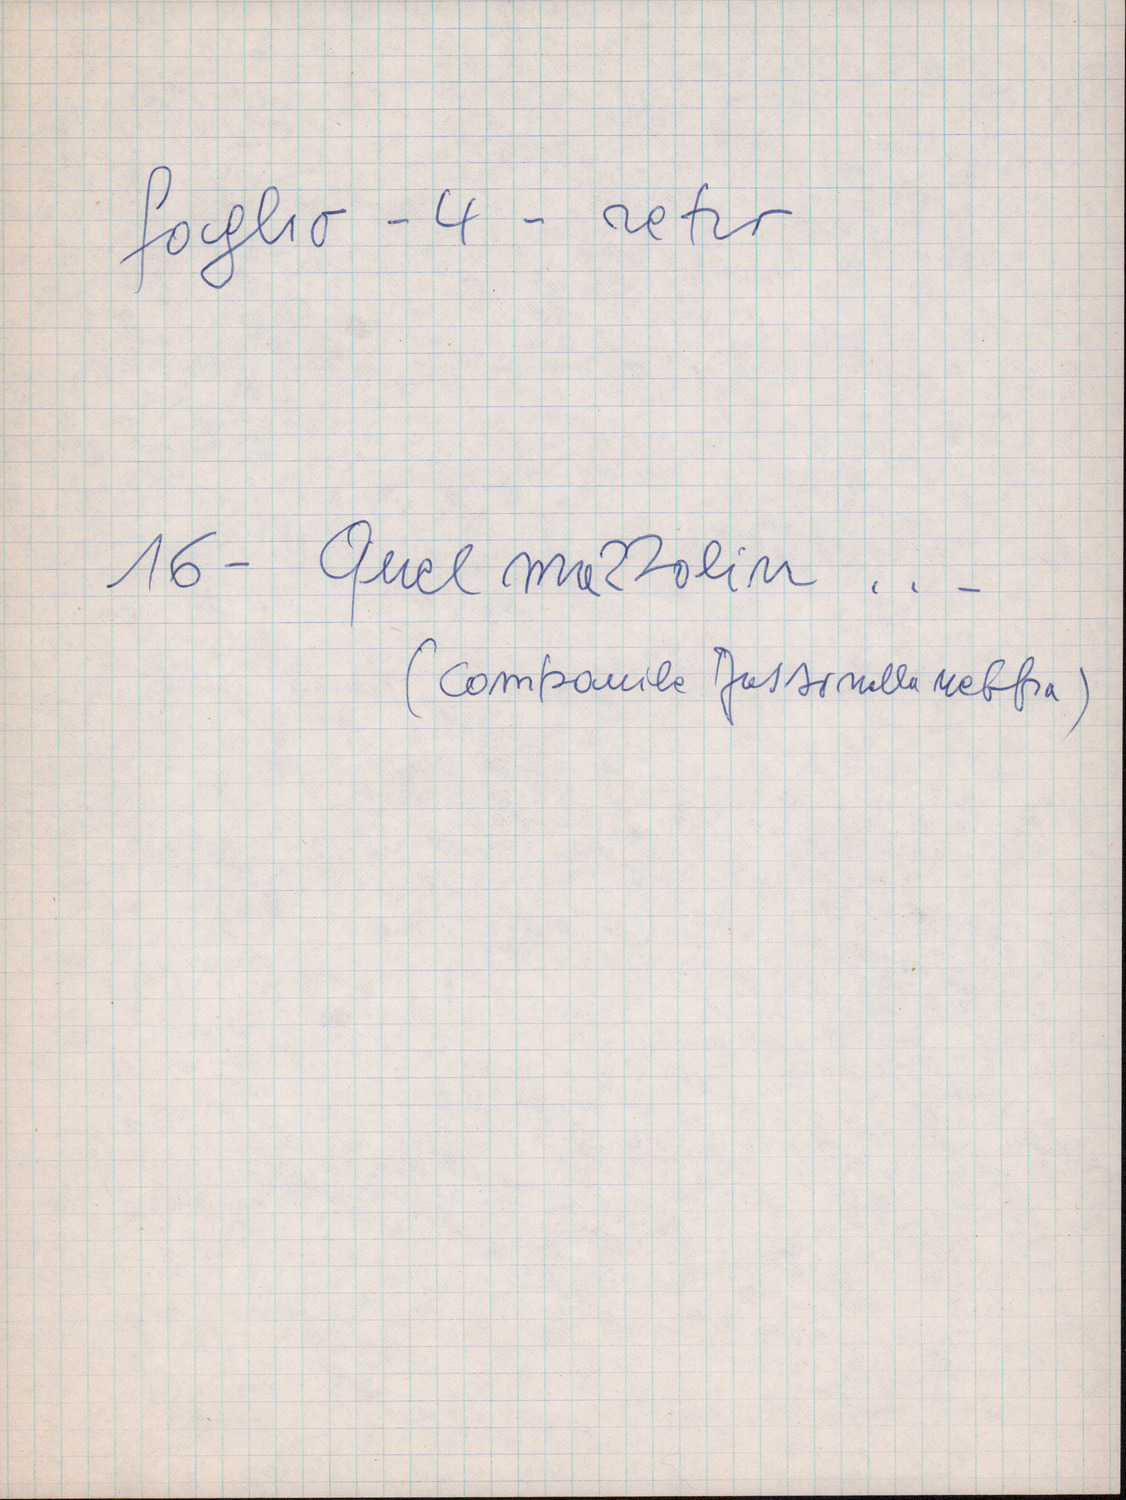 foglio - 4 - retro
16 - Quel mazzolin ...
(Campanile nella nebbia)